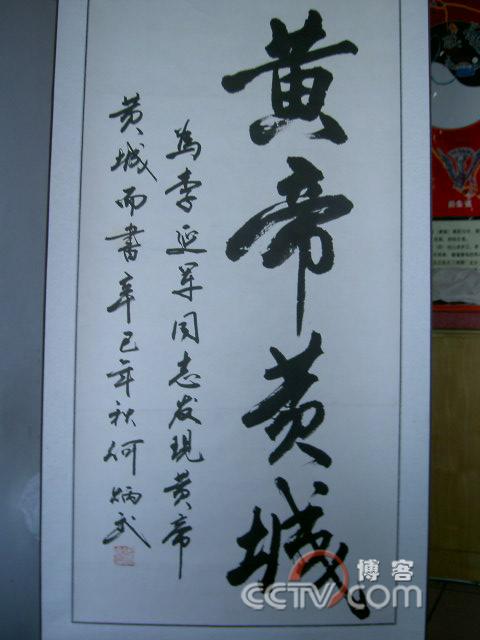 黄帝黄城
为李延军同志发现黄帝
黄城而书辛巳年秋何炳武
博客
CCTV.com